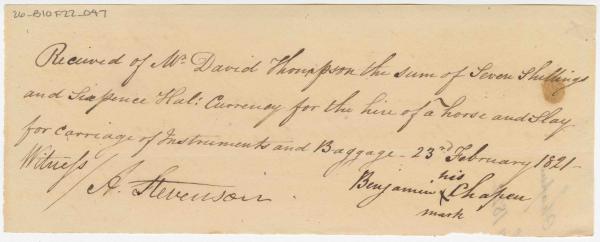 26-B10F22_047
Received of Mr. David Thompson the sum of Seven Shillings
and Sixpence Hal: Currency for the hire of a horse and Slay
for carriage of Instruments and Baggage - 23rd February 1821 -
Witness
A. Stevenson
his
Benjamin X Chapen
mark